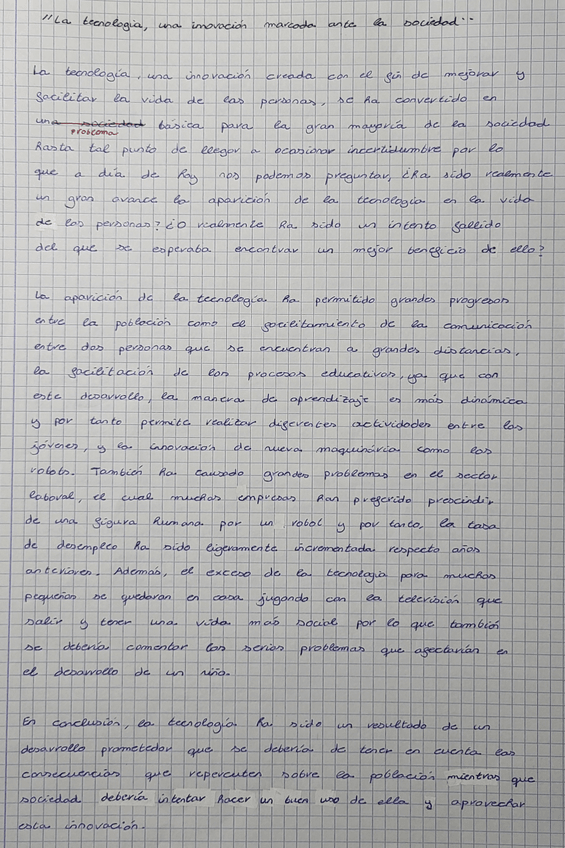 "La tecnología, una innovación marcada ante la sociedad"
La tecnología, una innovación creada con el fin de mejorar y
facilitar la vida de las personas, se ha convertido en
una sociedad básica para la gran mayoría de la sociedad
problema
hasta tal punto de llegar a ocasionar incertidumbre por lo
que a día de hoy nos podemos preguntar, ¿ha sido realmente
un gran avance la aparición de la tecnología en la vida
de las personas? ¿O realmente ha sido un intento fallido
del que se esperaba encontrar un mejor beneficio de ello?
La aparición de la tecnología ha permitido grandes progresos
entre la población como el facilitamiento de la comunicación
entre dos personas que se encuentran a grandes distancias,
la facilitación de los procesos educativos, ya que con
este desarrollo, la manera de aprendizaje es más dinámica
y por tanto permite realizar diferentes actividades entre los
jóvenes, y la innovación de nueva maquinária como los
robots. También ha causado grandes problemas en el sector
laboral, el cual muchas empresas han preferido prescindir
de una figura humana por un robot y por tanto, la tasa
de desempleo ha sido ligeramente incrementada respecto años
anteriores. Además, el exceso de la tecnología para muchos
pequeños se quedaran en casa jugando con la televisión que
salir y tener una vida más social por lo que también
se debería comentar los serios problemas que afectarían en
el desarrollo de un niño.
En conclusión, la tecnología ha sido un resultado de un
desarrollo prometedor que se debería de tener en cuenta las
consecuencias que repercuten sobre la población mientras que
sociedad debería intentar hacer un buen uso de ella y aprovechar
esta innovación.